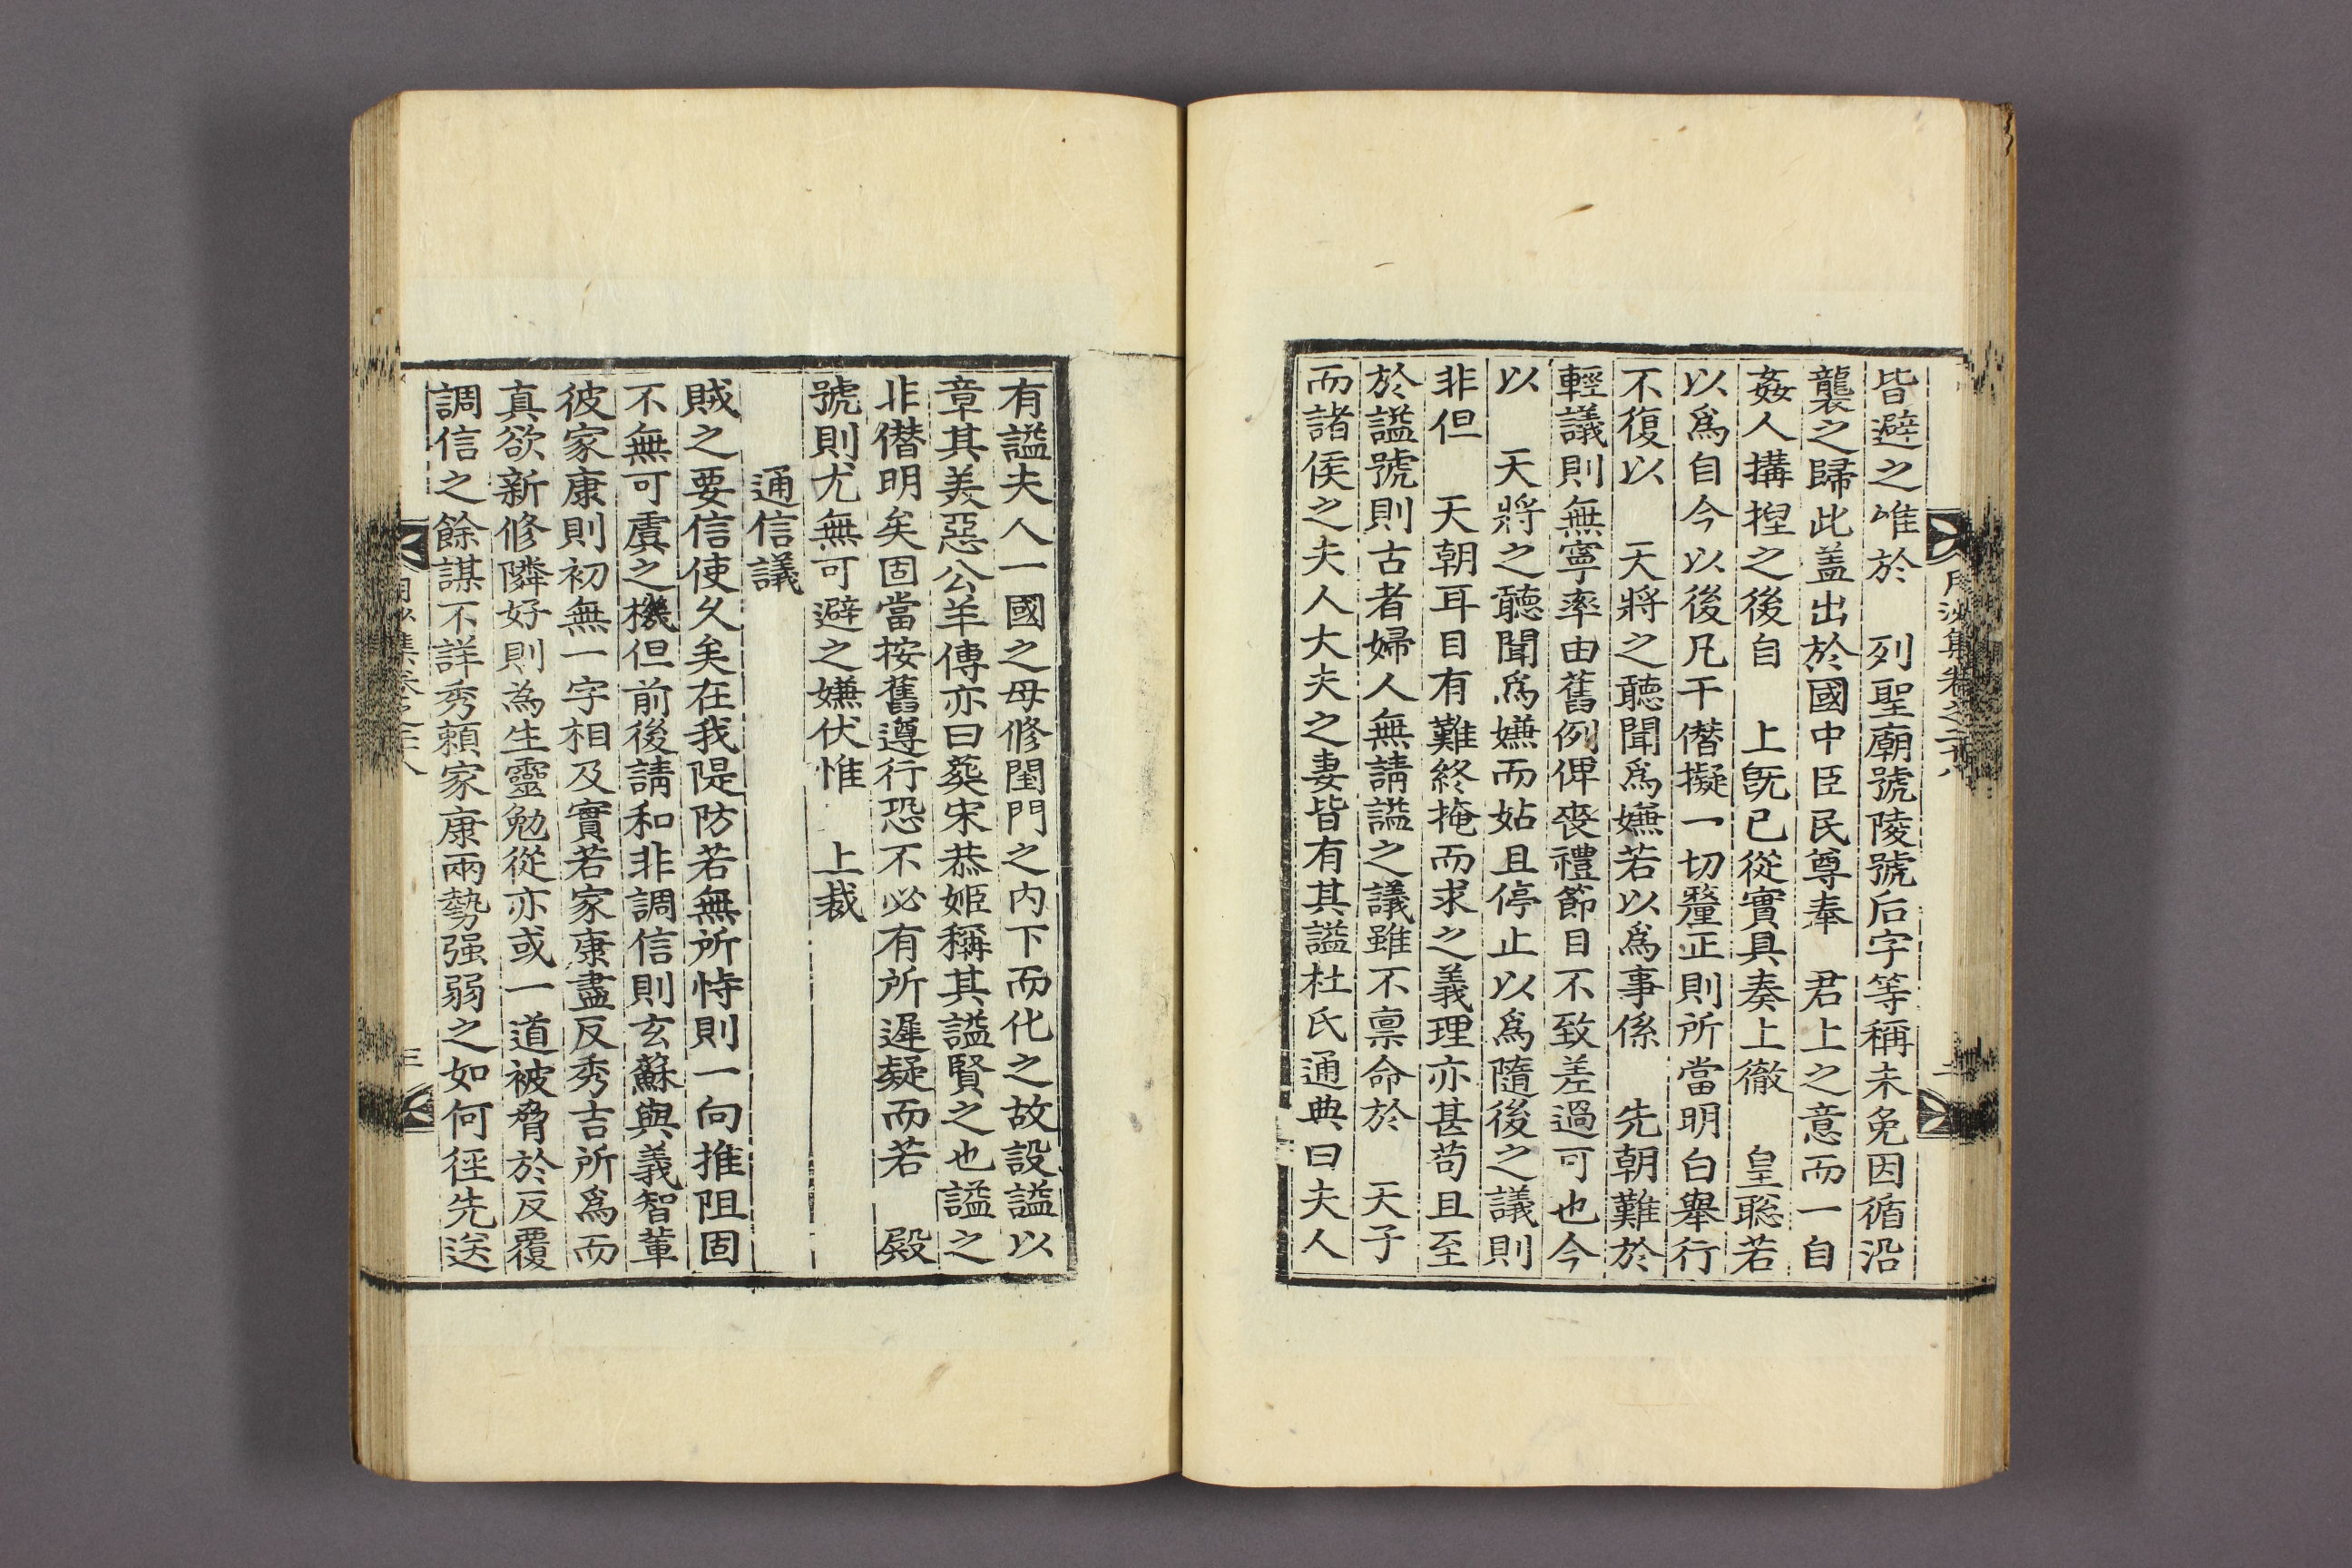 皆避之唯於　列聖廟號陵號后字等稱未免因循沿
襲之歸此盖出於國中臣民尊奉　君上之意而一自
姦人搆捏之後自　上旣已從實具奏上徹　皇聡若
以爲自今以後凡干僭擬一切釐正則所當明白擧行
不復以　天將之聽聞爲嫌若以爲事係　先朝難於
輕議則無寧率由舊例俾喪禮節目不致差過可也今
以　天將之聽聞爲嫌而姑且停止以爲隨後之議則
非但　天朝耳目有難終掩而求之義理亦甚苟且至
於謚號則古者婦人無請謚之議雖不禀命於　天子
而諸侯之夫人大夫之妻皆有其謚杜氏通典曰夫人
有謚夫人一國之母修閨門之内下而化之故設謚以
章其美惡公羊傳亦曰葬宋恭姬稱其謚賢之也謚之
非僭明矣固當按舊遵行恐不必有所遲疑而若　殿
號則尤無可避之嫌伏惟　上裁
通信議
賊之要信使久矣在我隄防若無所恃則一向推阻固
不無可虞之機但前後請和非調信則玄蘇與義智輩
彼家康則初無一字相及實若家康盡反秀吉所爲而
真欲新修隣好則為生靈勉從亦或一道被脅於反覆
調信之餘謀不詳秀賴家康兩勢强弱之如何徑先送
月沙集卷之二十八